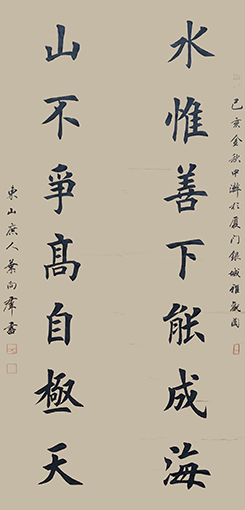 己亥金秋中澣於厦门银城雅居
水惟善下能成海
山不爭高自極天
東山庶人葉向群書